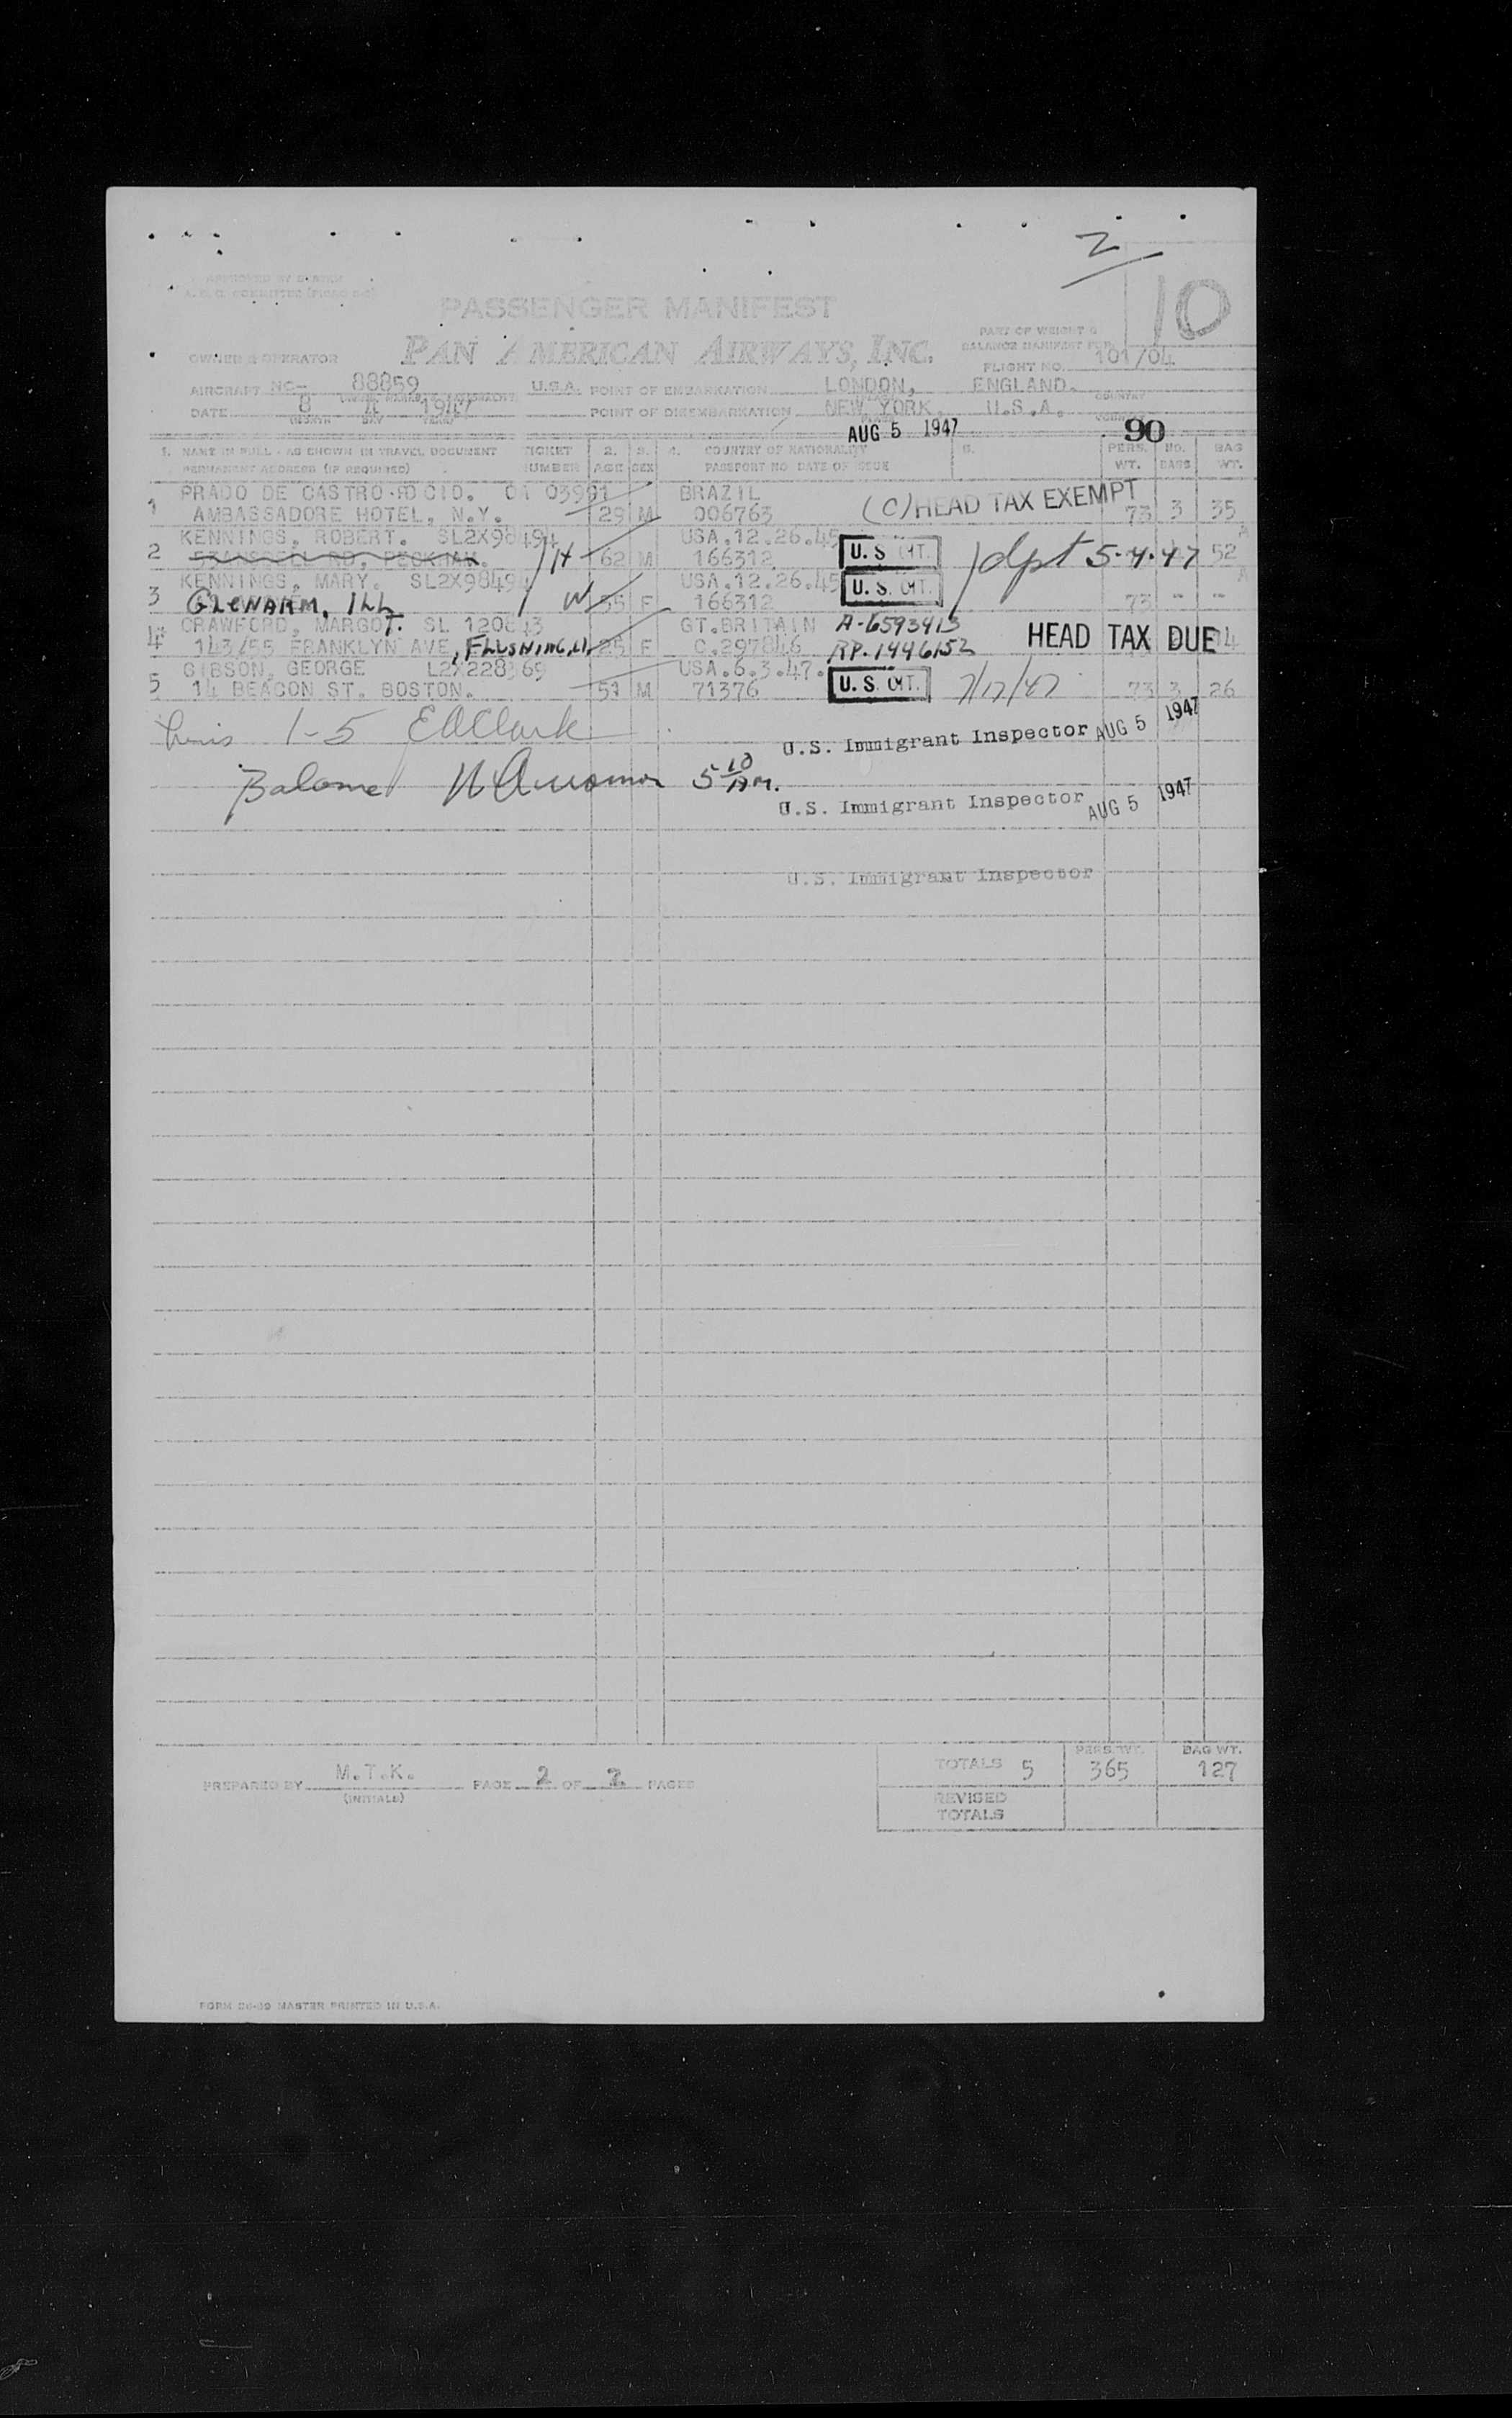 2
10
APPROVED BY BUREAU
PASSENGER MANIFEST
PAN AMERICAN AIRWAYS, INC.
PART OF WEIGHT &
BALANCE MANIFEST FOR
OWNER & OPERATOR
FLIGHT NO. 101/04
AIRCRAFT NC- 88859 U.S.A. POINT OF EMBARKATION LONDON, ENGLAND.
DATE 8 4 1947 POINT OF DISEMBARKATION NEW YORK, U.S.A.
MONTH DAY YEAR
COUNTRY
AUG 5 1947 90
1. NAME IN FULL - AS SHOWN IN TRAVEL DOCUMENT TICKET 2. 3. 4. COUNTRY OF NATIONALITY 5. PERS. NO. BAG
PERMANENT ADDRESS (IF REQUIRED) NUMBER AGE SEX PASSPORT NO DATE OF ISSUE WT. BAGS WT.
1 PRADO DE CASTRO CID. 01 03991 BRAZIL (C) HEAD TAX EXEMPT
AMBASSADORE HOTEL, N.Y. 29 M 006763 73 3 35
2 KENNINGS, ROBERT. SL2X98494 USA.12.26.45 U.S. CIT.
RD, PECKHAM. H 62 M 166312 dpt 5-4-47 52
3 KENNINGS, MARY. SL2X9849 USA.12.26.45 U.S. CIT.
GLENARM, ILL W 55 F 166312 73 - -
4 CRAWFORD, MARGOT. SL 120643 GT.BRITAIN A-6593413
143/55 FRANKLYN AVE, FLUSHING, LI 25 F C.297846 RP.1446152 HEAD TAX DUE 14
5 GIBSON, GEORGE L2X228369 USA.6.3.47. U.S. CIT. 7/17/47
14 BEACON ST. BOSTON. 51 M 71376 73 3 26
1-5 EAClark U.S. Immigrant Inspector AUG 5 1947
5 10 AM.
U.S. Immigrant Inspector AUG 5 1947
U.S. Immigrant Inspector
PREPARED BY M.T.K. PAGE 2 OF 2 PAGES
(INITIALS)
PERS. WT. BAG WT.
TOTALS 5 365 127
REVISED
TOTALS
FORM 26-39 MASTER PRINTED IN U.S.A.